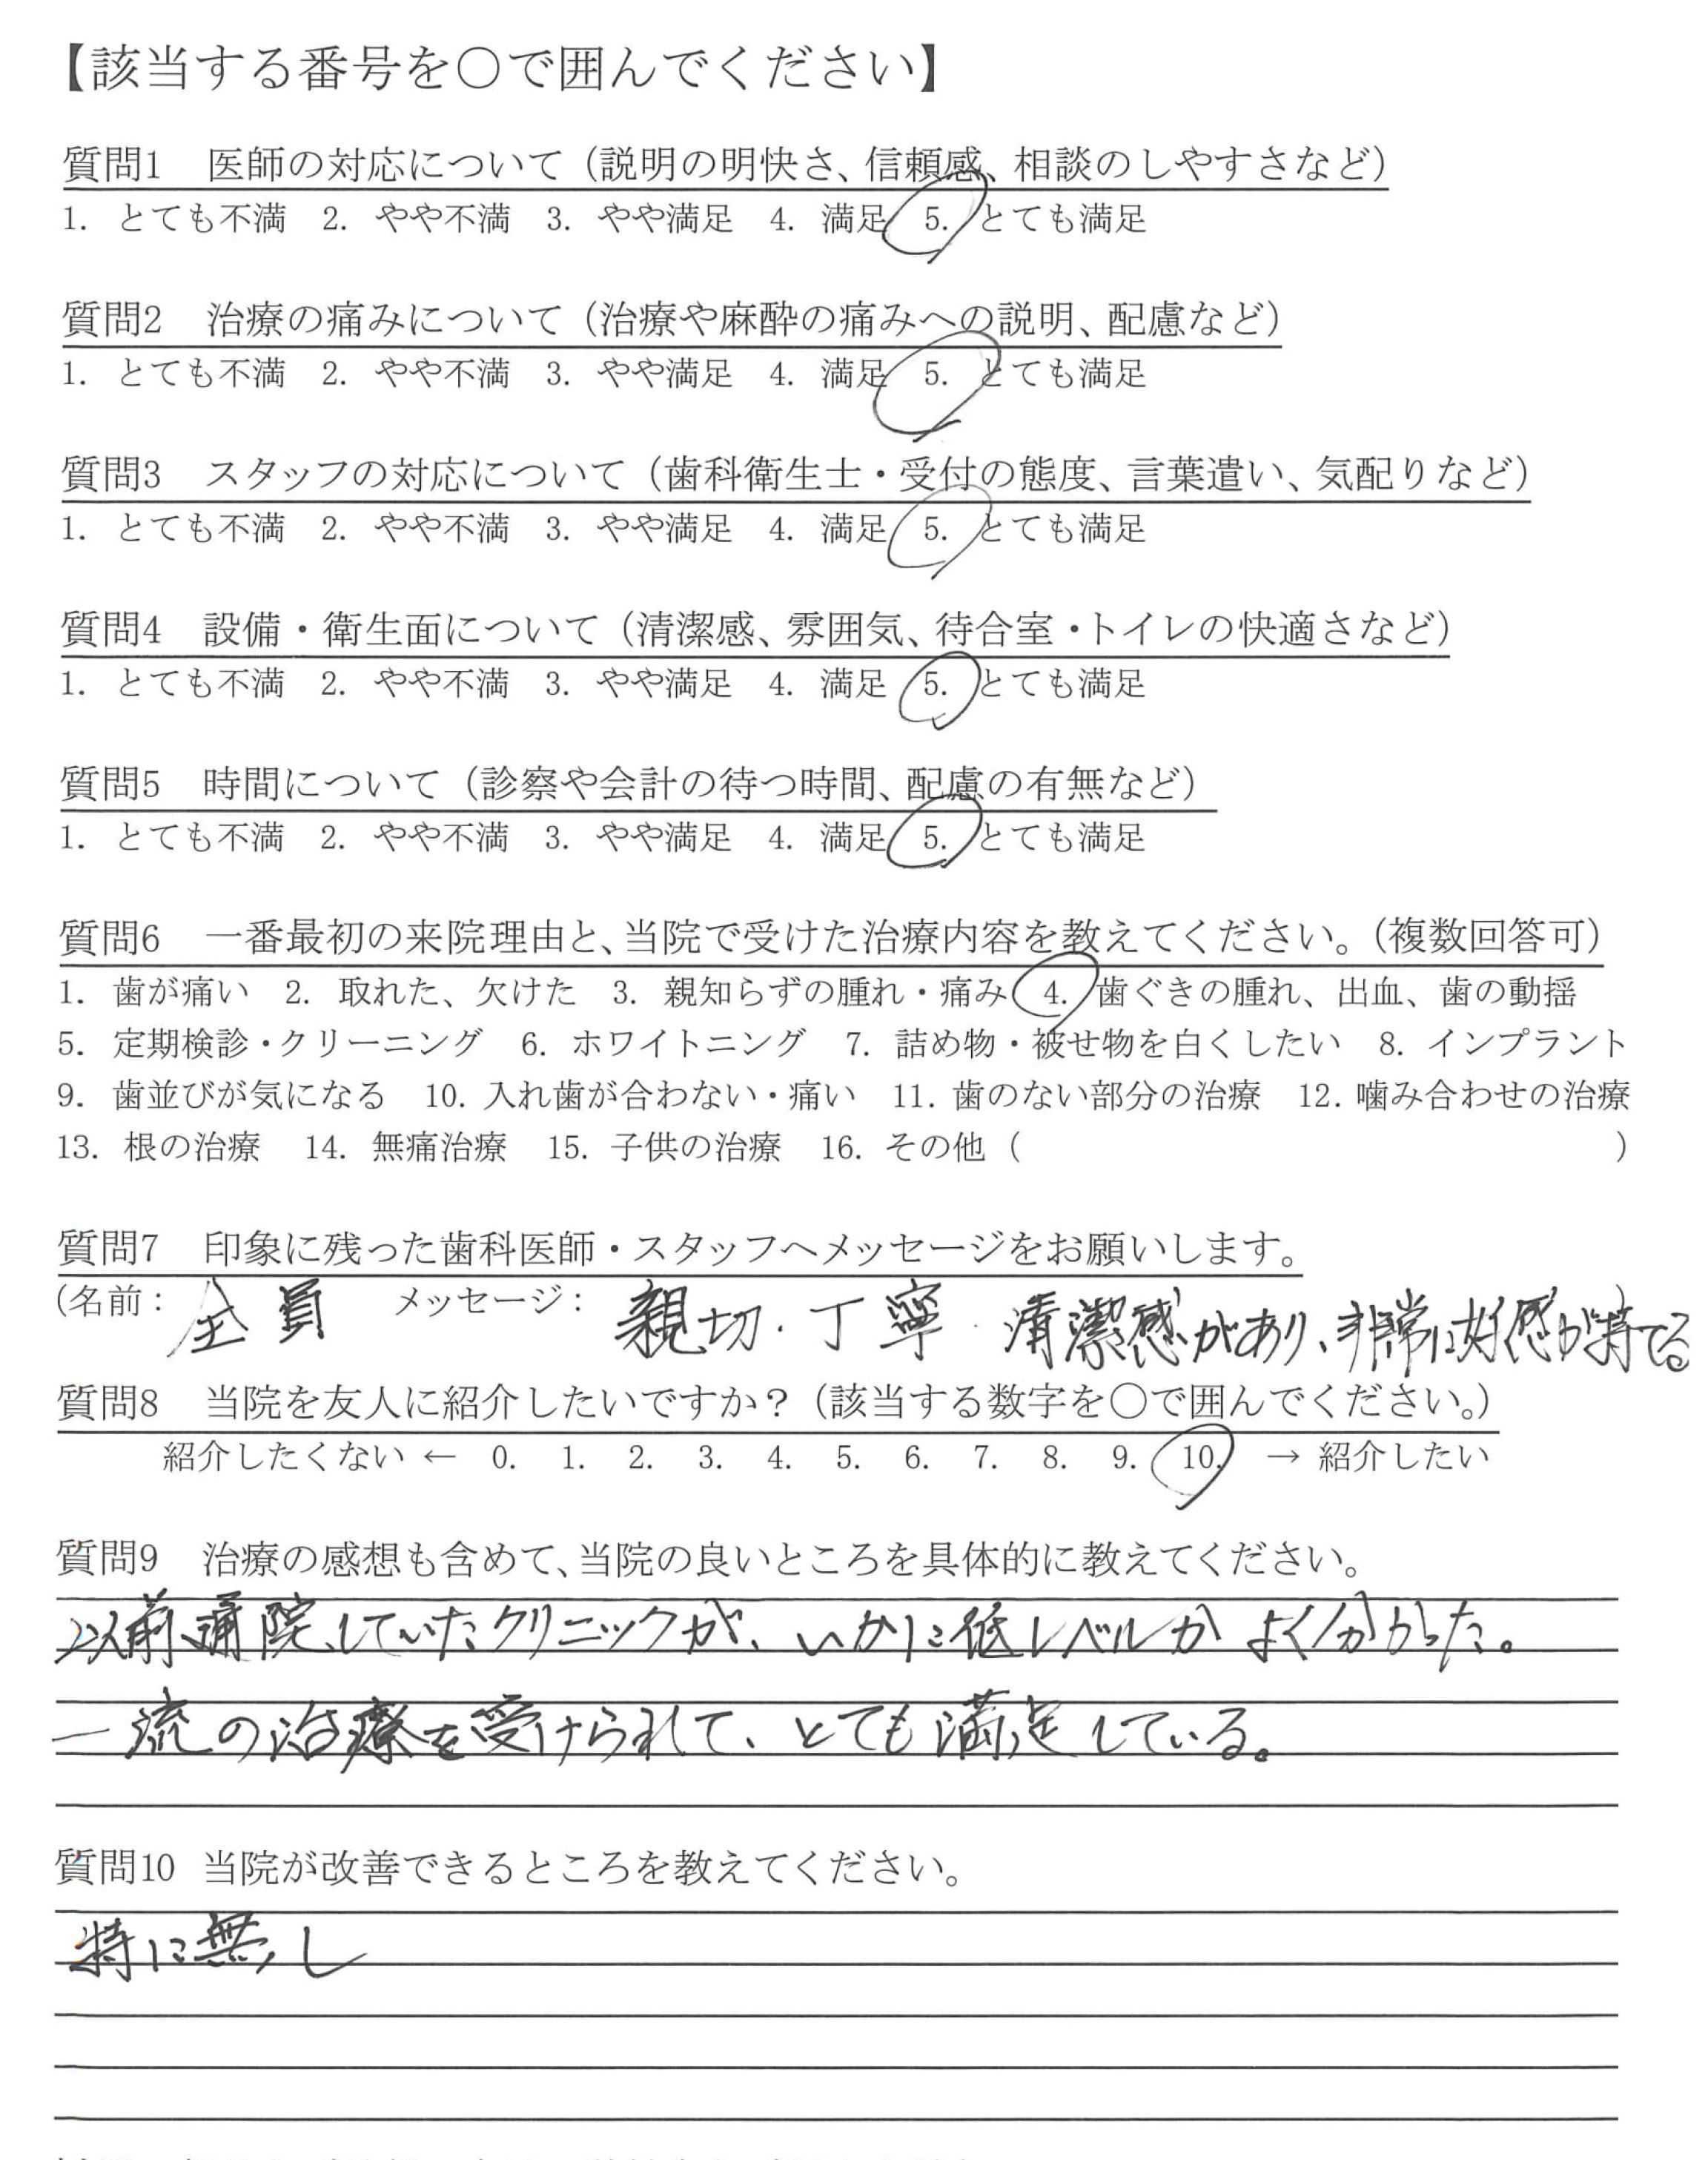 【該当する番号を○で囲んでください】
質問1　医師の対応について（説明の明快さ、信頼感、相談のしやすさなど）
1. とても不満　2. やや不満　3. やや満足　4. 満足　5. とても満足
質問2　治療の痛みについて（治療や麻酔の痛みへの説明、配慮など）
1. とても不満　2. やや不満　3. やや満足　4. 満足　5. とても満足
質問3　スタッフの対応について（歯科衛生士・受付の態度、言葉遣い、気配りなど）
1. とても不満　2. やや不満　3. やや満足　4. 満足　5. とても満足
質問4　設備・衛生面について（清潔感、雰囲気、待合室・トイレの快適さなど）
1. とても不満　2. やや不満　3. やや満足　4. 満足　5. とても満足
質問5　時間について（診察や会計の待つ時間、配慮の有無など）
1. とても不満　2. やや不満　3. やや満足　4. 満足　5. とても満足
質問6　一番最初の来院理由と、当院で受けた治療内容を教えてください。（複数回答可）
1. 歯が痛い　2. 取れた、欠けた　3. 親知らずの腫れ・痛み　4. 歯ぐきの腫れ、出血、歯の動揺
5. 定期検診・クリーニング　6. ホワイトニング　7. 詰め物・被せ物を白くしたい　8. インプラント
9. 歯並びが気になる　10. 入れ歯が合わない・痛い　11. 歯のない部分の治療　12. 噛み合わせの治療
13. 根の治療　14. 無痛治療　15. 子供の治療　16. その他（　　　）
質問7　印象に残った歯科医師・スタッフへメッセージをお願いします。
(名前：全員　メッセージ：親切・丁寧・清潔感があり、非常に好感が持てる）
質問8　当院を友人に紹介したいですか？（該当する数字を○で囲んでください。）
紹介したくない ← 0. 1. 2. 3. 4. 5. 6. 7. 8. 9. 10. → 紹介したい
質問9　治療の感想も含めて、当院の良いところを具体的に教えてください。
以前通院していたクリニックが、いかに低レベルか よく分かった。
一流の治療を受けられて、とても満足している。
質問10　当院が改善できるところを教えてください。
特に無し